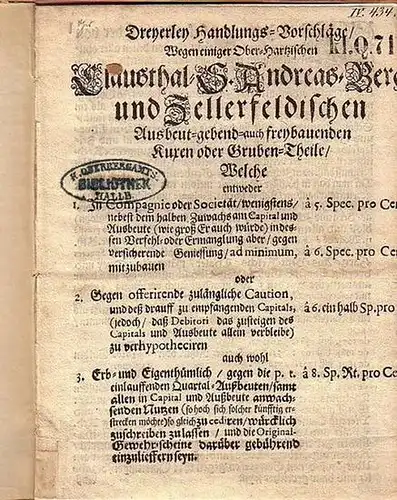 IV. 434.
kl.Q.71
Dreyerley Handlungs-Vorschläge/
Wegen einiger Ober-Hartzischen
Clausthal-S. Andreas-Berg
und Zellerfeldischen
Ausbeut-gebend-auch freybauenden
Kuxen oder Gruben-Theile/
Welche
entweder
K. OBERBERGAMTS
BIBLIOTHEK
HALLE
1. In Compagnie oder Societät/ wenigstens/ à 5. Spec. pro Ce
nebest dem halben Zuwachs am Capital und
Ausbeute (wie groß Er auch würde) in des-
sen Verfehl- oder Ermanglung aber/ gegen
versicherende Geniessung/ ad minimum, à 6. Spec. pro Ce
mitzubauen
oder
2. Gegen offerirende zulängliche Caution,
und deß drauff zu empfangenden Capitals, à 6. ein halb Sp. pro
(jedoch/ daß Debitori das zusteigen des
Capitals und Ausbeute allein verbleibe)
zu verhypotheciren
auch wohl
3. Erb- und Eigenthümlich / gegen die p. t. à 8. Sp. Rt. pro Ce
einlauffenden Quartal-Außbeuten/ samt
allen in Capital und Ausbeute anwach-
senden Nutzen (so hoch sich solcher künfftig er-
strecken möchte) so gleich zu cediren/ würcklich
zuschreiben zu lassen / und die Original-
Gewehr-scheine darüber gebührend
einzulieffern seyn.